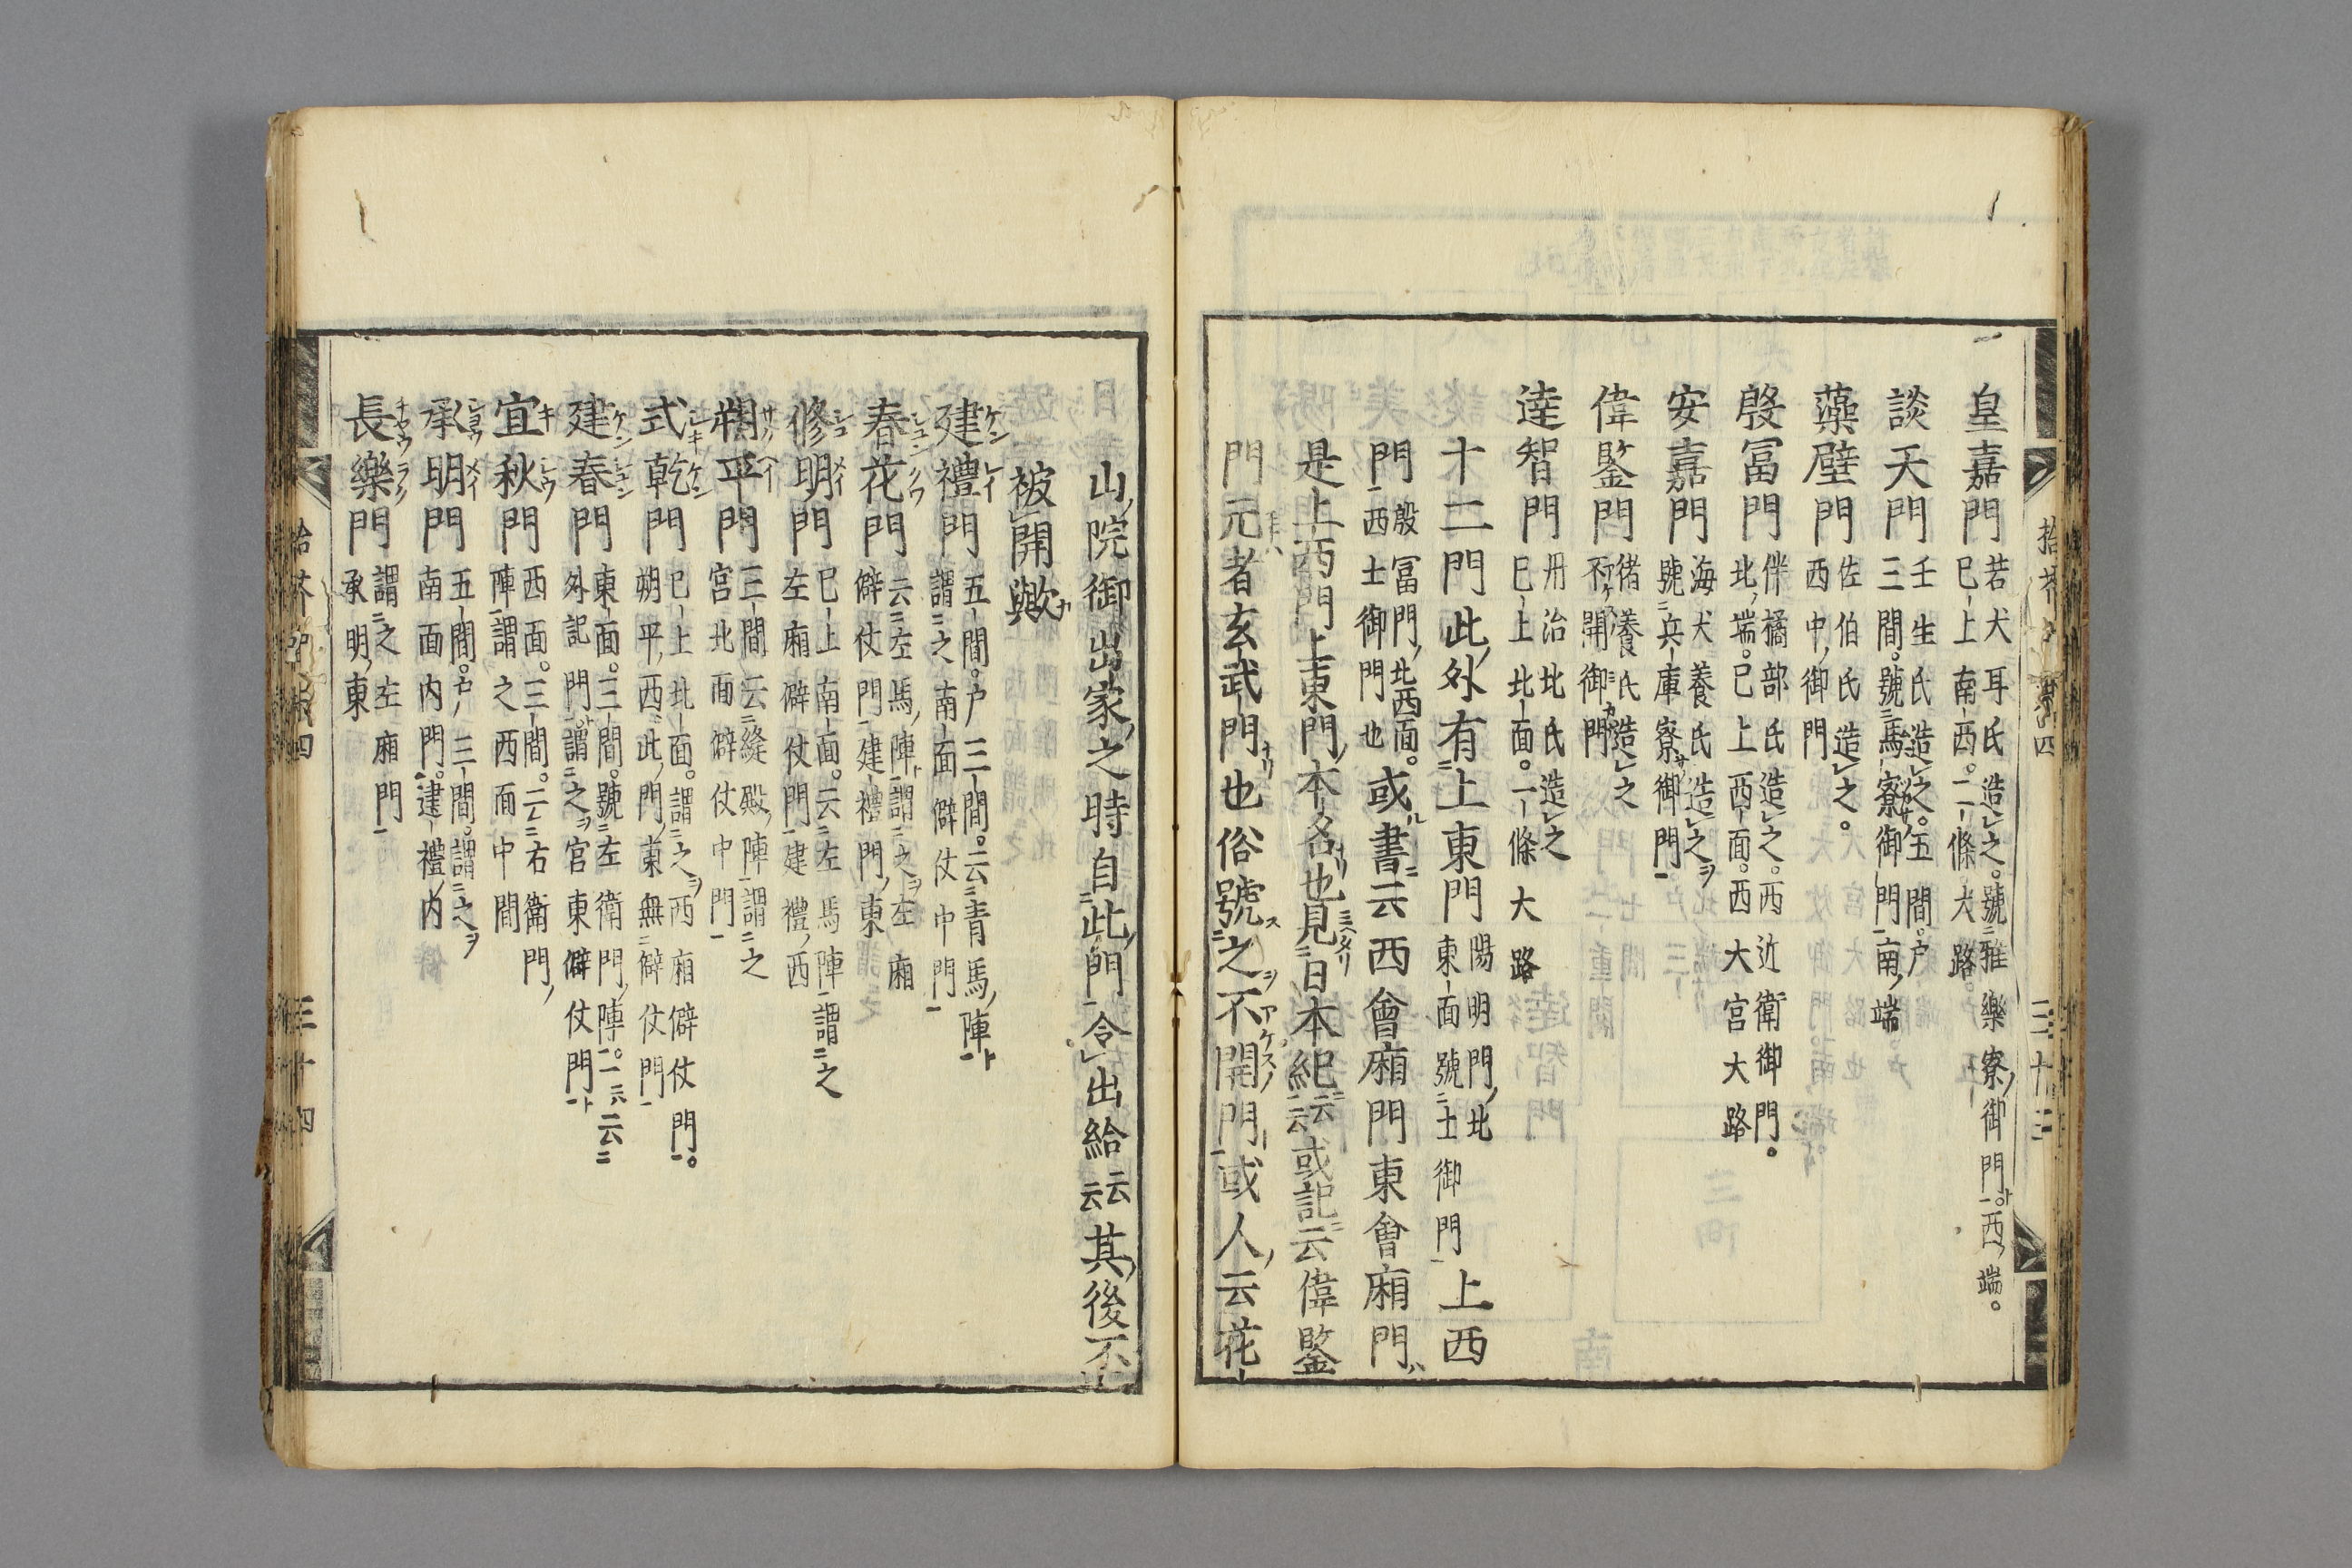 皇嘉門 若犬耳氏造之。號雅樂寮御門西端。
巳上南西。二條大路
談天門 壬生氏造之。五間。戸
三間。號馬寮御門南端
藻壁門 佐伯氏造之。
西中御門
殷冨門 伴橘部氏造之。西近衛御門。
北端。巳上西面。西大宮大路
安嘉門 海犬養氏造之
號兵庫寮御門
偉鍳門 猪養氏造之
不開御門
達智門 丹治比氏造之
巳上北面。一條大路
十二門此外有上東門 陽明門北
東面號土御門 上西
門 殷冨門北西面。
西土御門也 或書云西會廂門東會廂門
是上西門上東門本名也見日本紀云云或記云偉鍳
門元者玄武門也俗號之不開門或人云花
山院御出家之時自此門令出給云云其後不
被開歟
建禮門 五間。戸三間。云青馬陣
謂之南面僻仗中門
春花門 云左馬陣謂之左廂
僻仗門建禮門東
修明門 巳上南面。云左馬陣謂之
左廂僻仗門建禮西
朔平門 三間云縫殿陣謂之
宮北面僻仗中門
式乾門 巳上北面。謂之西廂僻仗門。
朔平西此門東無僻仗門
建春門 東面。三間。號左衛門陣。
外記門謂之宮東僻仗門
宜秋門 西面。三間。云右衛門
陣謂之西面中間
承明門 五間。戸三間。謂之
南面内門。建禮内
長樂門 謂之左廂門
承明東
拾芥
三十三
三十四